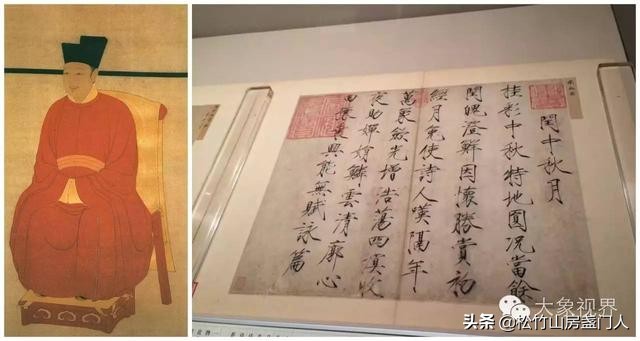 閏中秋月
桂彩中秋特地圓況當餘
閏魄澄鮮因懷勝賞初
經月免使詩人嘆隔年
萬象斂光增浩蕩四溟收
夜助嬋娟鱗雲清廓心
田豁乘興能無賦詠篇
大象视界
头条 @松竹山房盏门人